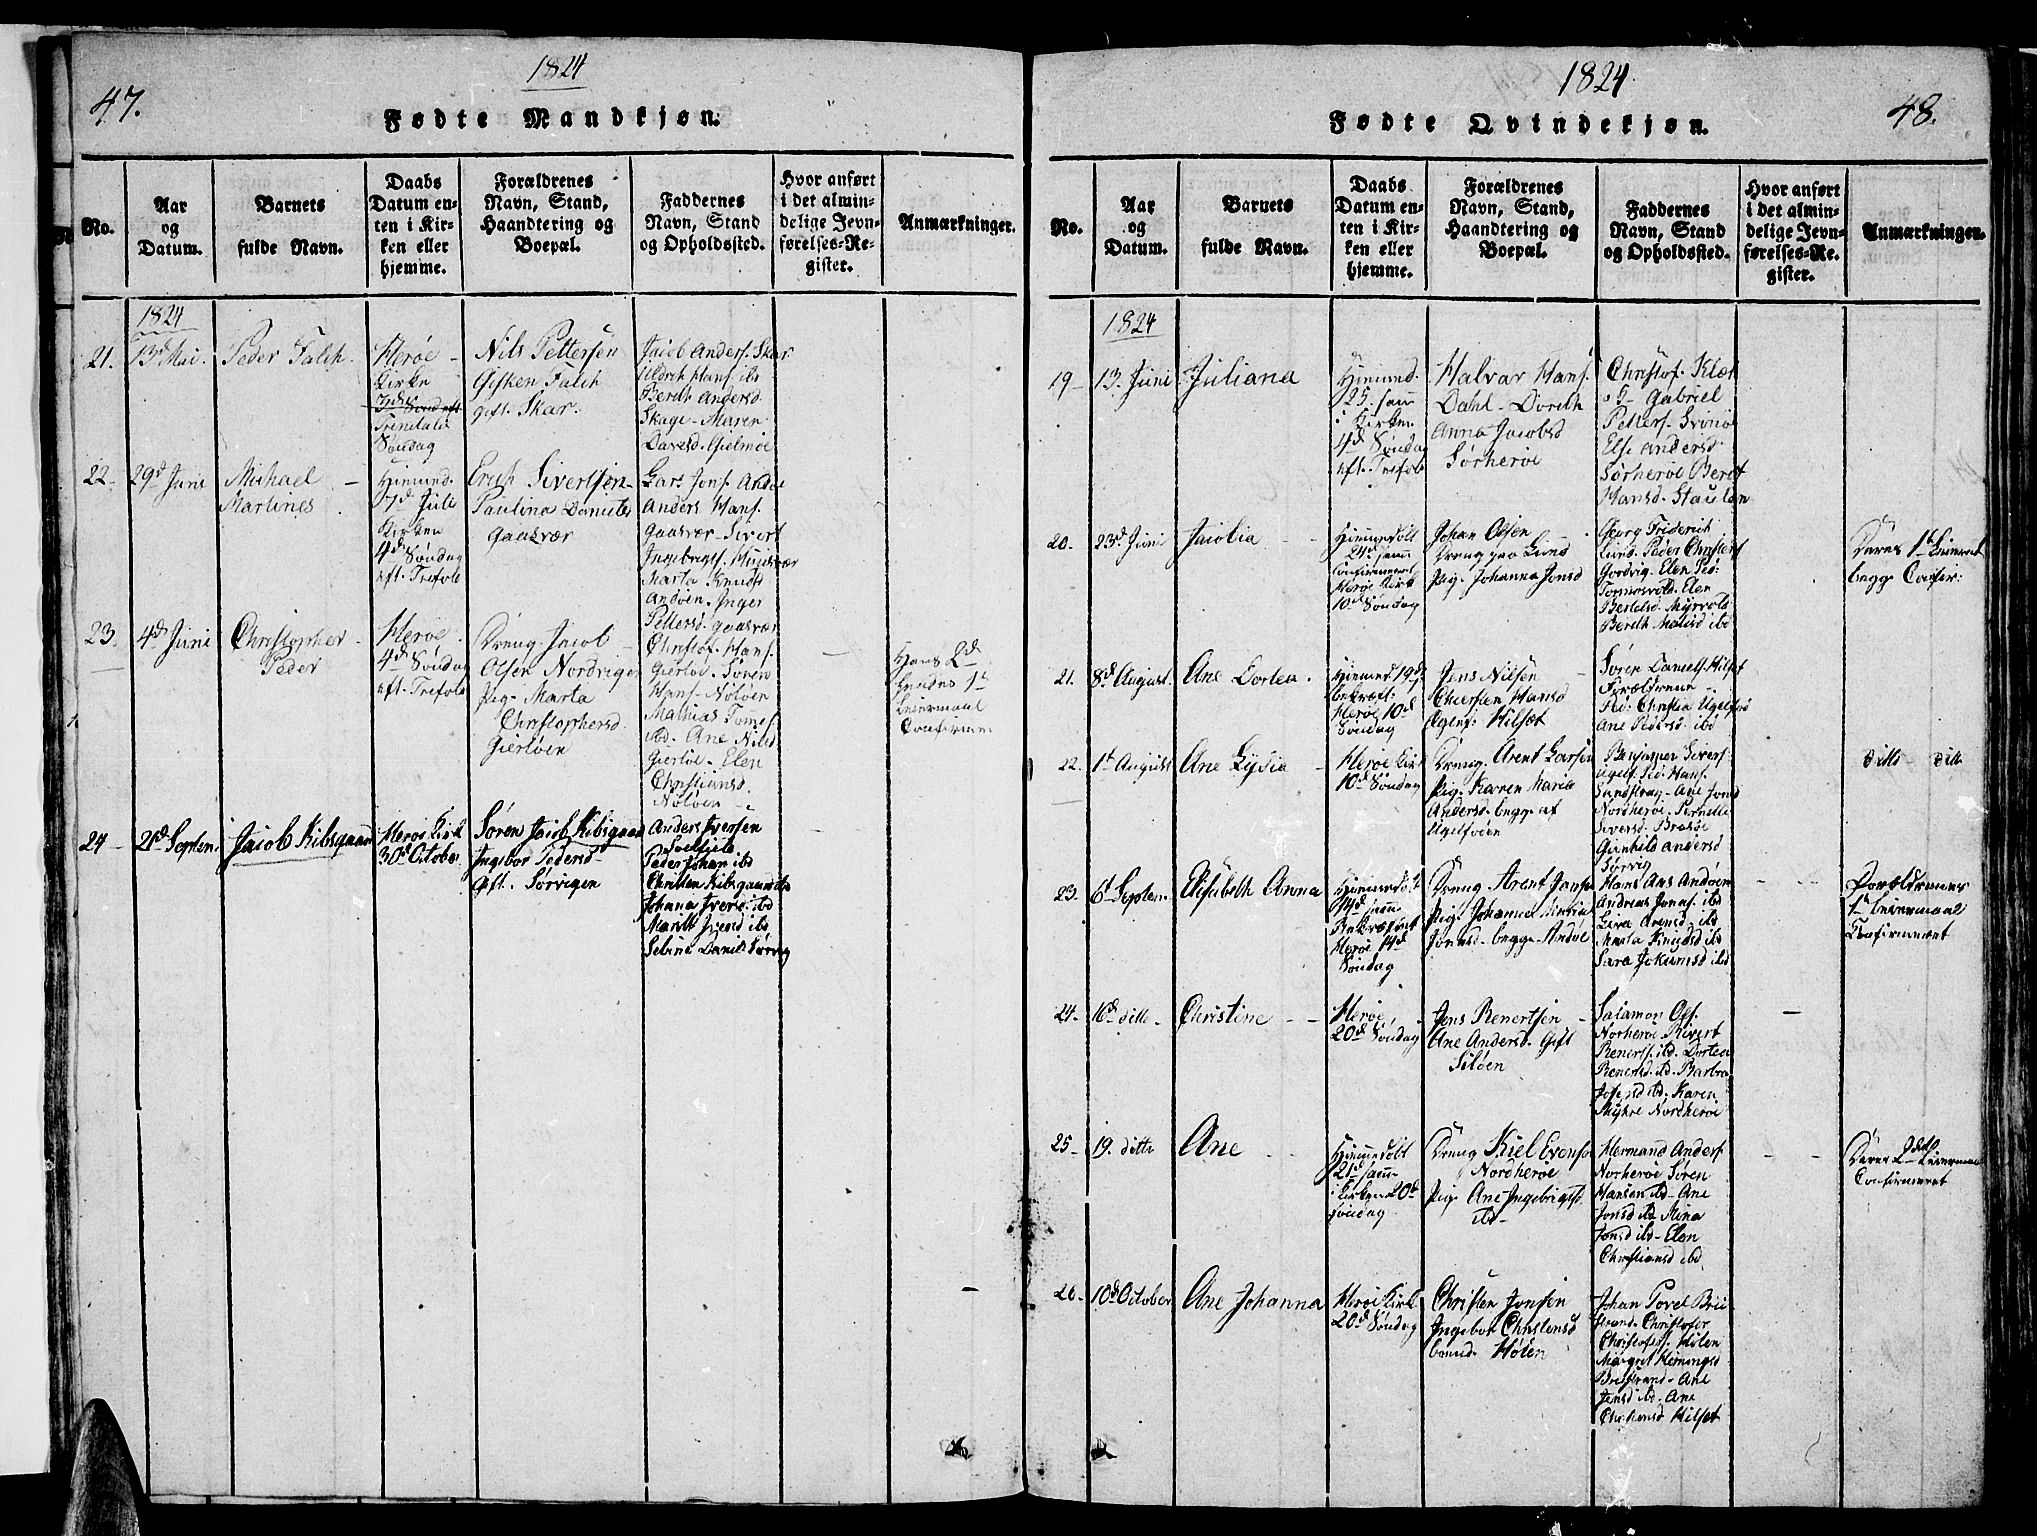 47.
1824
Fødte Mandkjøn.
No.
Aar
og
Datum.
Barnets
fulde Navn.
Daabs
Datum en-
ten i Kir-
ken eller
hjemme.
Forældrenes
Navn, Stand,
Haandtering og
Boepæl.
Faddernes
Navn, Stand
og Opholdssted.
Hvor anført
i det almin-
delige Jevn-
førelses-Re-
gister.
Anmærkninger.
1824
21.
13d Mai.
Peder Falch.
Herøe
Kirke
3die Sønd eft
Trinitatis
Søndag
Nils Pettersen
Gisken Falch
gift. Skar.
Jacob Anders. Skar
Uldrik Hans. ibd
Bereth Andersd
Skage. Maren
Davidsd.
22.
29d Juni
Michael
Martines
Hiemmed.
7d Juli
Kirken
4d Søndag
eft. Trefol.
Erich Sivertsen
Paulina Daniels
Gaasvær
Lars Jons. Andøe
Anders Hans.
Gaasvær. Sivert
Ingebrigts. Huusvær
Marta Knuds
Andøen. Inger
Pettersd. Gaasvær
23.
4d Juni
Christopher
Peder
Herøe
4d Søndag
eft. Trefol.
Dreng. Jacob
Olsen Nordvigen
Pig. Marta
Christophersd.
Gierløen
Christof. Hans.
Gierløe. Søren
Hans. Nøløen
Mathias Tomes.
ibd. Ane Nilsd
Gierløe. Elen
Christiansd.
Nøløen
Hans 2d
hendes 1t
Leiermaal
Confirmeret
24
21d Septem
Jacob Kibsgaard
Herøe Kirk
30d October
Søren Jacob Kibsgaard
Ingebor Pedersd
Gift. Sørvigen
Anders Iversen
Peder Johan ibd
Christen Kibsgaard ibd
Johana Iversd. ibd
Marith Iversd ibd
Sebina Daniels Sørvig
1824
48.
Fødte Qvindekjøn.
No.
Aar
og
Datum.
Barnets
fulde Navn.
Daabs
Datum en-
ten i Kir-
ken eller
hjemme.
Forældrenes
Navn, Stand,
Haandtering og
Boepæl.
Faddernes
Navn, Stand
og Opholdssted.
Hvor anført
i det almin-
delige Jevn-
førelses-Re-
gister.
Anmærkninger.
1824
19
13. Juni
Juliana
Hiemmed.
25. samm
i Kirken
4d Søndag
eft. Trefol.
Halvar Hans.
Dahl. Doreth
Anna Jacobsd
Sørherøe
Christof. Klæt
Gabriel
Petters. Svinø
Else Andersd
Sørherøe Beret
Hansd. Staulen
20.
23d Juni
Jacobia
Hiemmedøbt
24d samm
Confirmeret
Herøe Kirk
10d Søndag
Johan Olsen
Dreng paa Lund
Pig. Johanna Jonsd
Georg Friderich
Lund. Peder Christofs
Elen Ped:
Elen
Bertelsd. Myrvold
Bereth Matisd ibd
Deres 1t Leiermal
begge Confir:
21.
8d August.
Ane Dortea.
Hiemmed 19d
bekræft.
Herøe 10d
Søndag
Jens Nilsen
Chiersten Hansd
Egtef. Hilsæt
Søren Daniels Hilsæt
Forældrene
Ped. Christia
Ane Pedersd. ibd
22.
1t August
Ane Lydia
Herøe Kirk
10d Søndag
Dreng. Arent Larsen
Pig. Karen Maria
Andersd. begge af
Ugelføen
Sivers.
Ped. Hans.
Ane Jonsd
Nordherøe. Pernelle
Siversd. Brasøe
Gunhild Andersd
Sørvig
ditto ditt
23.
6t Septem.
Elisabeth Anna
Hiemmedøbt
14d samm
Bekræftet
Herøe 14d
Søndag
Dreng Arent Jonsen
Pig. Johanna Maria
Jonsd. begge Andøe
Hans Ans Andøen
Andreas Jonas. ibd
Liva Arensd. ibd
Marta Knudsd ibd
Sara Jokumsd ibd
Forældrenes
1te Leiermaal
Confirmeret
24.
16d ditto.
Christine
Herøe
20d Søndag
Jens Renertsen
Ane Andersd. Gift
Siløen
Salamon Ols.
Norherøe Sivert
Renerts. ibd. Dortea
Renersd ibd. Barbra
Josepsd ibd. Karen
Myhre Nordherøe
25
19. ditto
Ane
Hiemmedøbt
21d samm
i Kirken 20d
Søndag
Dreng Kiel Evens.
Nordherøe
Pig. Ane Ingebrigts.
ibd
Hermand Anders
Norherøe Søren
Hansen ibd. Ane
Jonsd ibd Mina
Jonsd ibd. Elen
Christiansd ibd.
Deres 2det Leiermaal
Confirmeret
26.
10d October
Ane Johanna
Herøe Kirk
20d Søndag
Christen Jonsen
Ingebor Christensd
boemd. Høten
Johan Povel Brii
strand. Christofer
Christofers. Hilen
Margret Hemingsd
Breistrand. Ane
Jensd ibd. Ane
Christensd Hilset